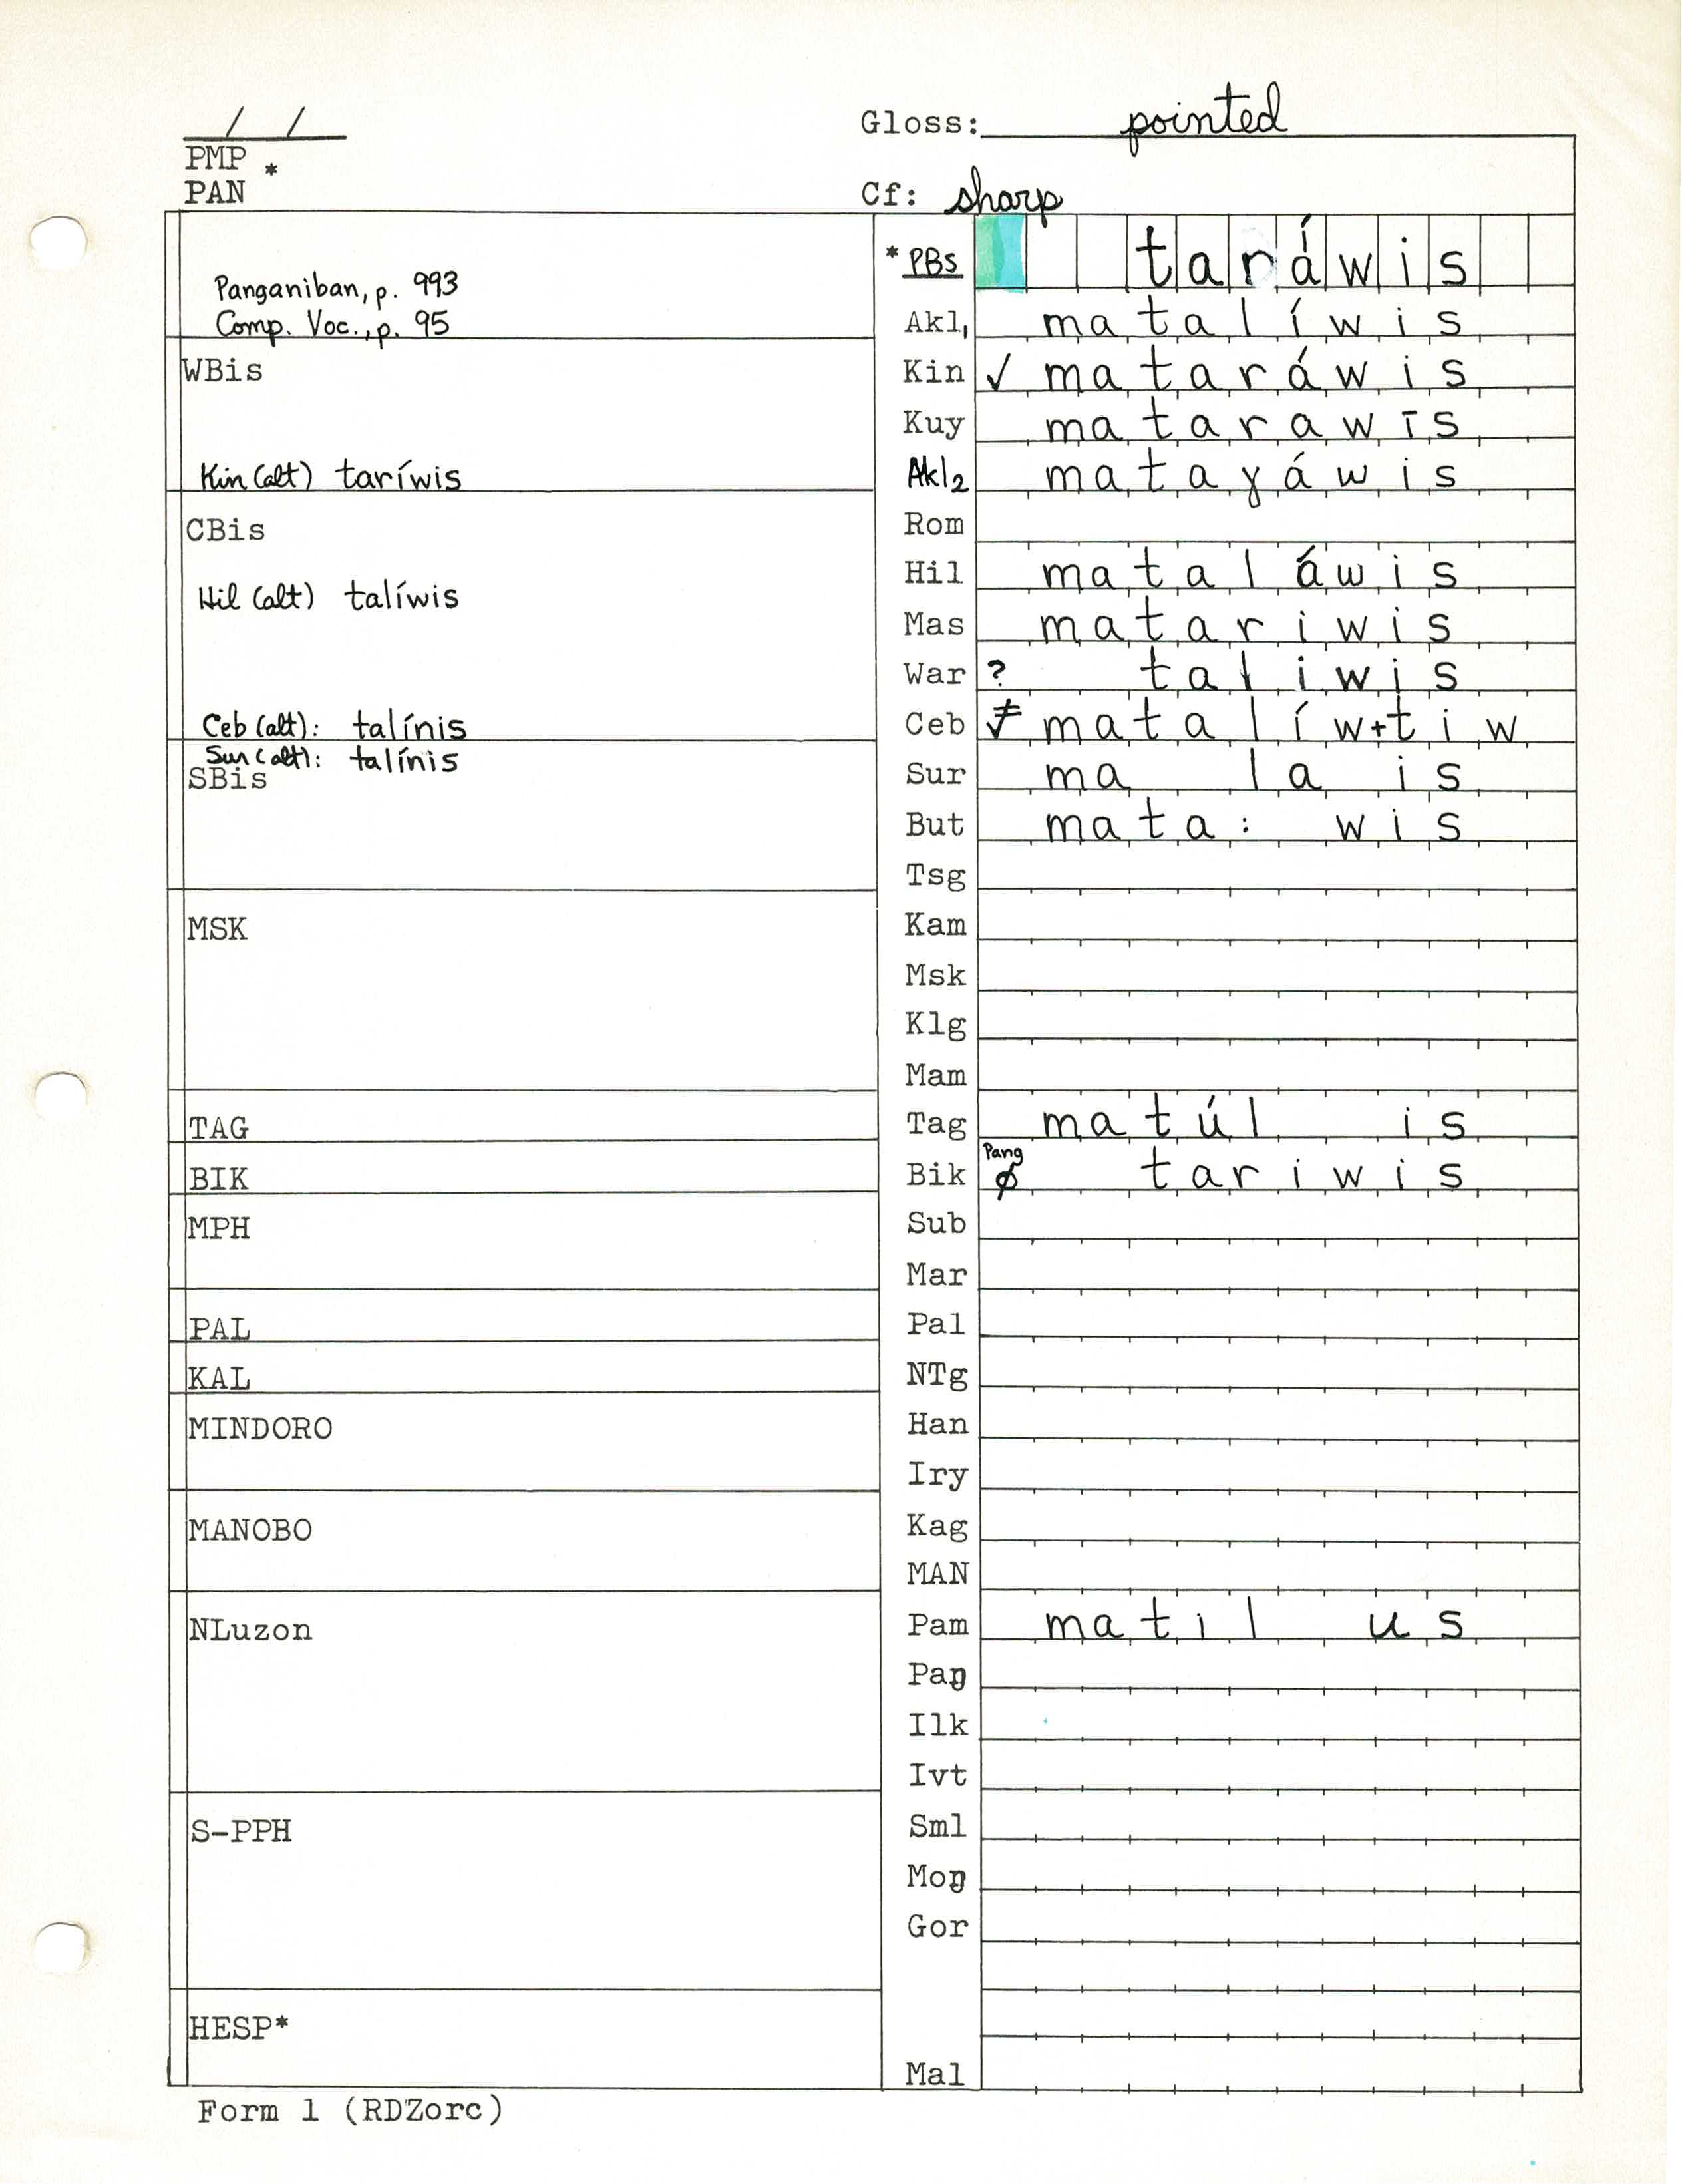 / /
Gloss: pointed
PMP *
PAN
Cf: sharp
Panganiban, p. 993
Comp. Voc., p. 95
*PBs taráwis
Akl₁ matalíwis
WBis
Kin ✓ mataráwis
Kuy matarawīs
Kin (alt) taríwis
Akl₂ mataɣáwis
CBis
Rom
Hil (alt) talíwis
Hil mataláwis
Mas matariwis
War ? taliwis
Ceb (alt): talínis
Ceb ≠ matalíw+tiw
Sur (alt): talínis
SBis
Sur ma la is
But mata: wis
Tsg
MSK
Kam
Msk
Klg
Mam
TAG
Tag matúl is
BIK
Bik Pang ∅ tariwis
MPH
Sub
Mar
PAL
Pal
KAL
NTg
MINDORO
Han
Iry
MANOBO
Kag
MAN
NLuzon
Pam matil us
Paŋ
Ilk
Ivt
S-PPH
Sml
Moŋ
Gor
HESP*
Mal
Form 1 (RDZorc)